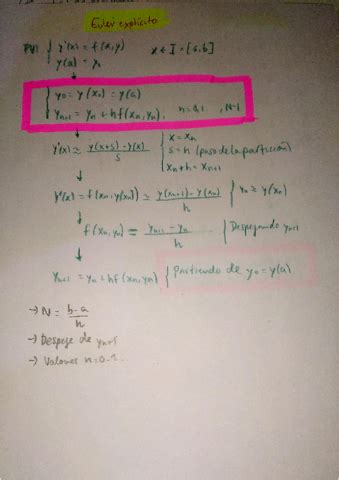 Euler explícito
PVI { y'(x) = f(x,y)    x ∈ I = [a,b]
y(a) = y₀
{ y₀ = y(x₀) = y(a)
yₙ₊₁ = yₙ + hf(xₙ,yₙ),   n=0,1   , N-1
y'(x) ≃ y(x+s) - y(x) / s   { x = xₙ
s = h (paso de la partición)
xₙ + h = xₙ₊₁
y'(xₙ) = f(xₙ, y(xₙ)) ≃ y(xₙ₊₁) - y(xₙ) / h   { yₙ ≃ y(xₙ)
f(xₙ, yₙ) = yₙ₊₁ - yₙ / h   { Despejando yₙ₊₁
yₙ₊₁ = yₙ + hf(xₙ, yₙ)   { partiendo de y₀ = y(a)
→ N = b-a / h
→ Despeje de yₙ₊₁
→ Valores n=0-1...